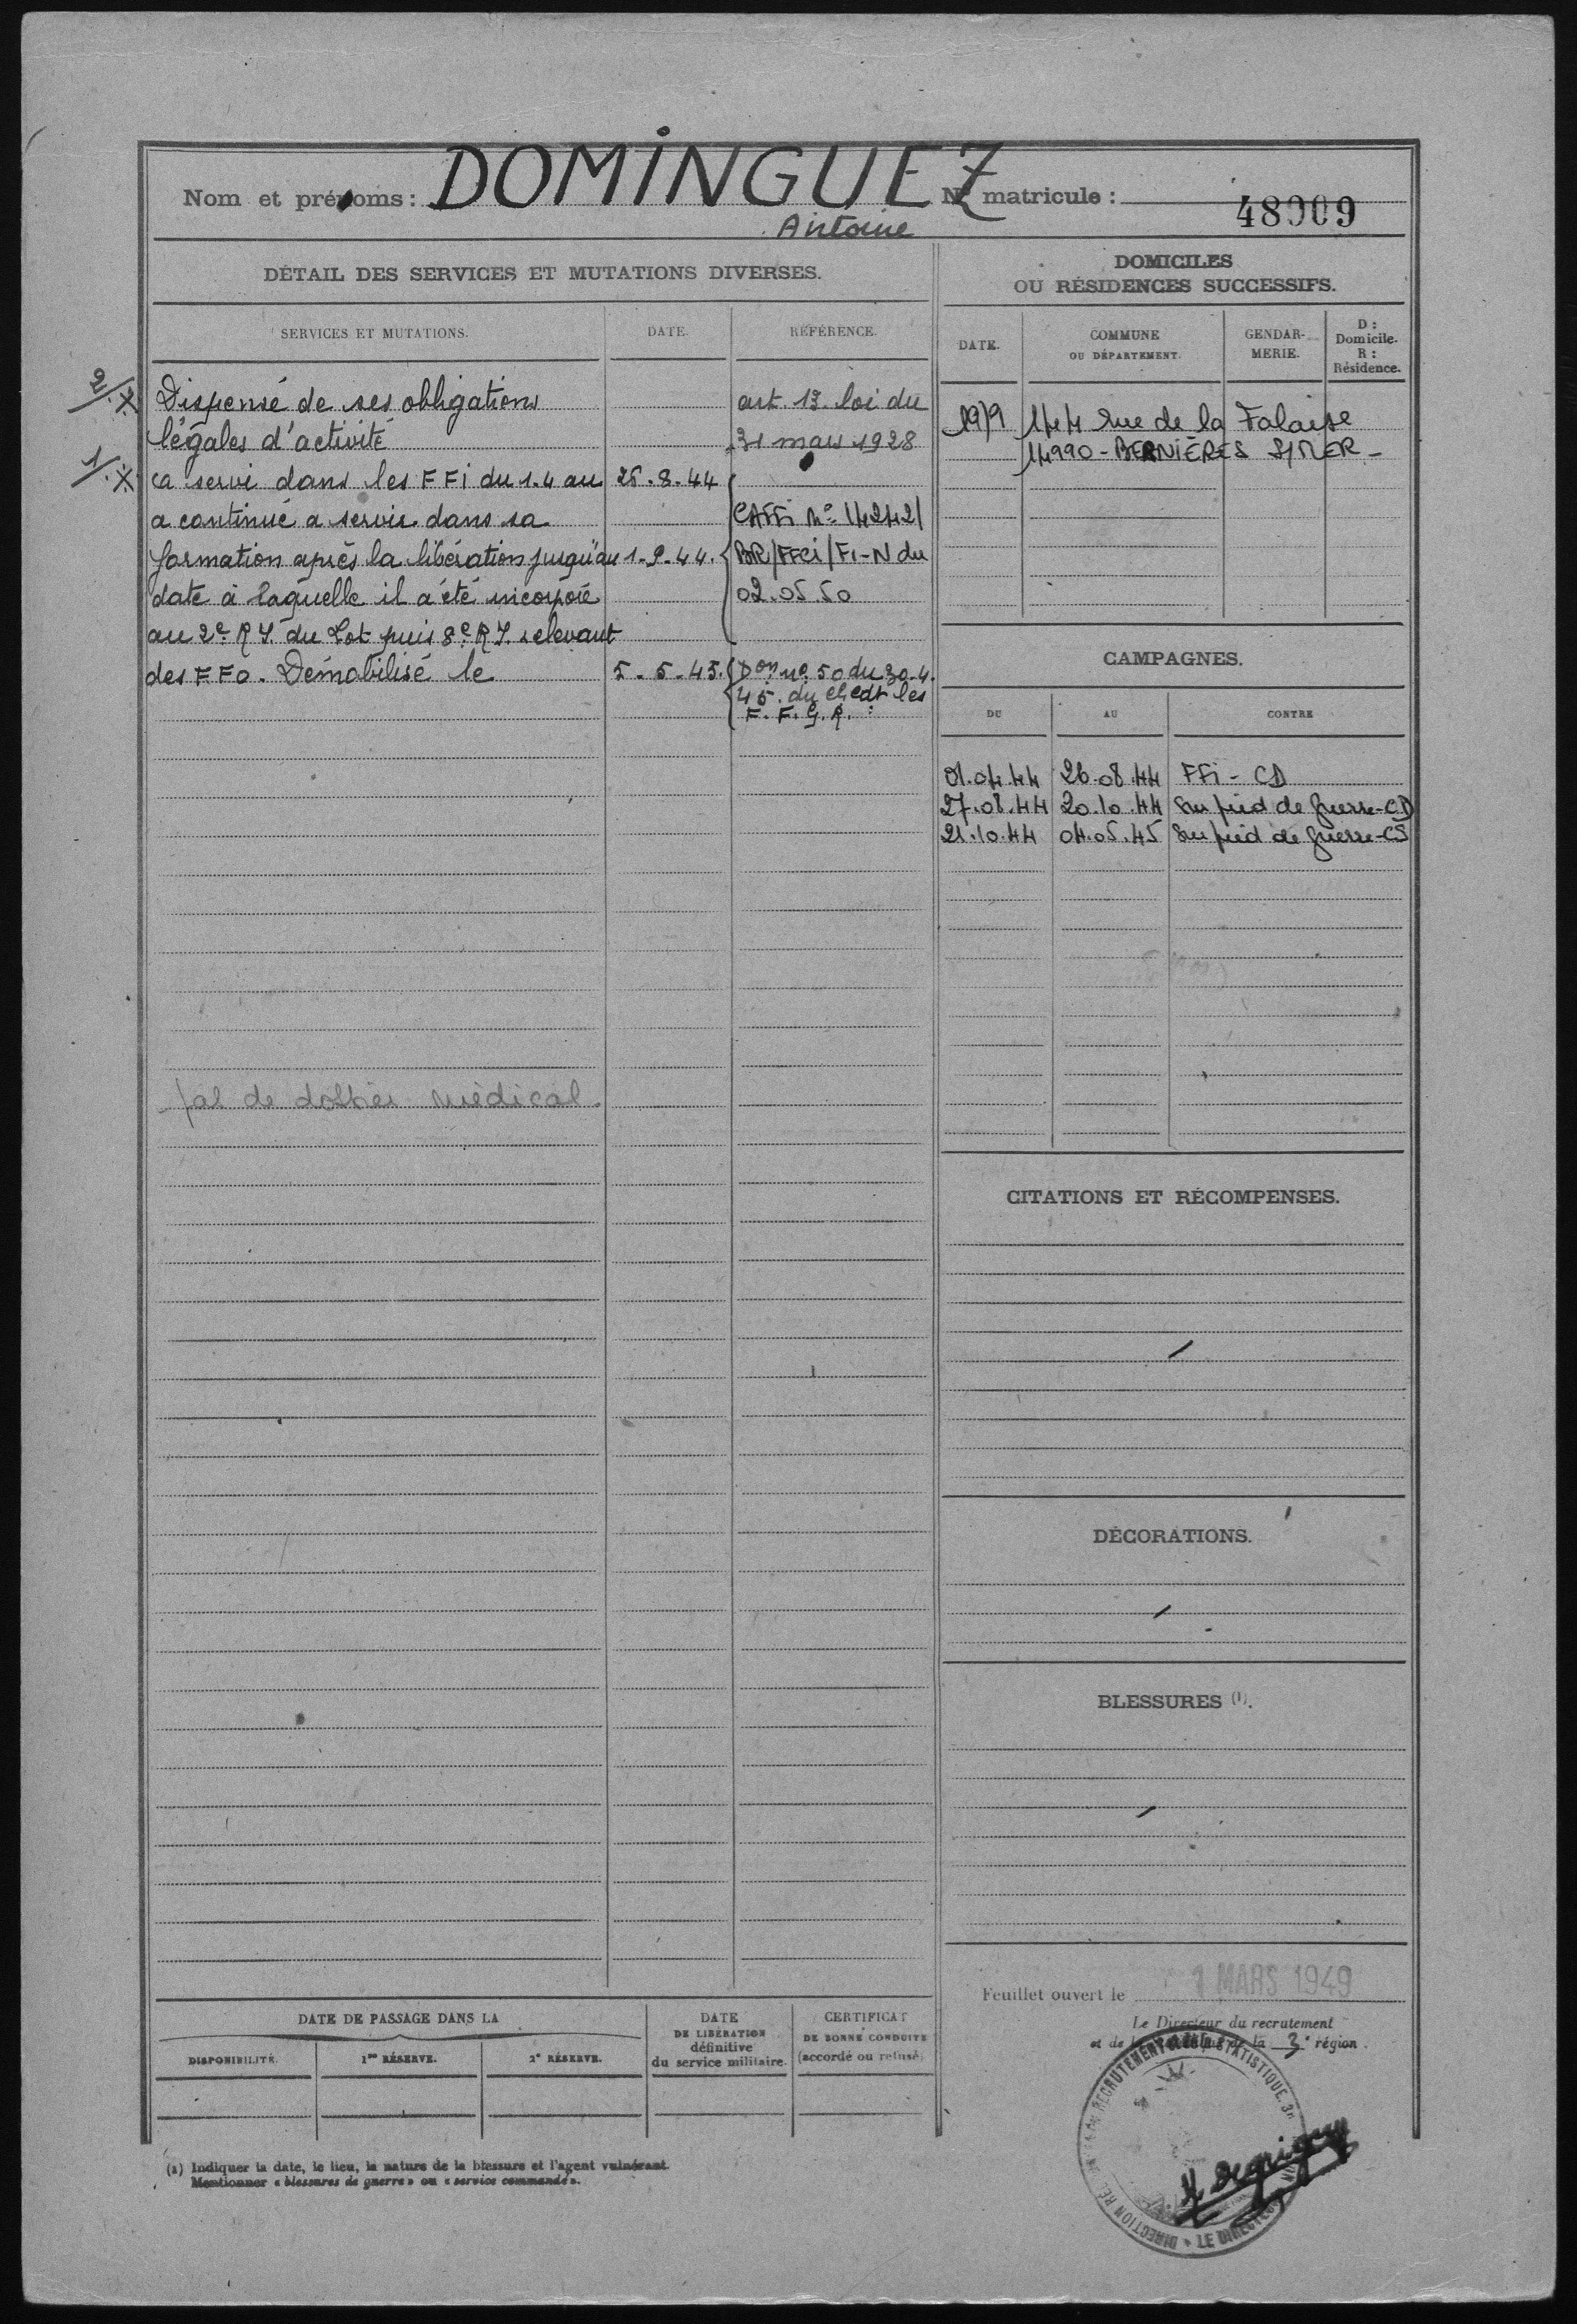 Nom et prénoms : DOMINGUEZ N° matricule : 48909
Antoine
DÉTAIL DES SERVICES ET MUTATIONS DIVERSES.
SERVICES ET MUTATIONS. DATE. RÉFÉRENCE.
2/. X Dispensé de ses obligations art. 13. loi du
légales d'activité 31 mars 1928
1/. X a servi dans les FFi du 1.4 au 26.8.44
a continué a servir dans sa CAFFi N° 14242/
formation après la libération jusqu'au 1-9-44. BR/FFCi/Fi-N du
date à laquelle il a été incorporé 02.05.50
au 2e R.I. du Lot puis 8e R.I. relevant
des FFO. Démobilisé le 5-5-45. Don no 50 du 30.4.
45. du Gl Cdt les
F.F.G.R.
Pas de dossier médical.
DOMICILES
OU RÉSIDENCES SUCCESSIFS.
DATE. COMMUNE
OU DÉPARTEMENT. GENDAR-
MERIE. D :
Domicile.
R :
Résidence.
1979 144 rue de la Falaise
14990 - BERNIÈRES S/MER -
CAMPAGNES.
DU AU CONTRE
01.04.44 26.08.44 FFi - CD
27.08.44 20.10.44 Sur pied de guerre-CD
21.10.44 04.05.45 Sur pied de guerre-CS
CITATIONS ET RÉCOMPENSES.
DÉCORATIONS.
BLESSURES (1).
Feuillet ouvert le 1 MARS 1949
Le Directeur du recrutement
et de la statistique de la 3e région.
DIRECTION RÉGIONALE DU RECRUTEMENT ET DE LA STATISTIQUE. 3e
LE DIRECTEUR
DATE DE PASSAGE DANS LA
DISPONIBILITÉ. 1re RÉSERVE. 2e RÉSERVE.
DATE
DE LIBÉRATION
définitive
du service militaire.
CERTIFICAT
DE BONNE CONDUITE
(accordé ou refusé)
(1) Indiquer la date, le lieu, la nature de la blessure et l'agent vulnérant.
Mentionner « blessures de guerre » ou « service commandé ».